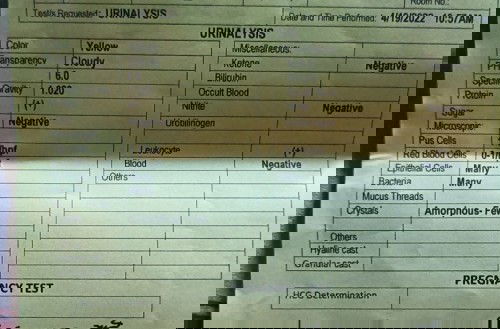 Room No.:
Test/s Requested: URINALYSIS Date and Time Performed: 4/19/2022 10:57AM
URINALYSIS
Color Yellow Miscellaneous:
Transparency Cloudy Ketone Negative
PH 6.0 Bilirubin
Specific Gravity 1.020 Occult Blood
Protein (+) Nitrite Negative
Sugar Negative Urobilinogen
Microscopic
Pus Cells Leukocyte (+)
Red Blood Cells Blood Negative
Epithelial Cells Many Others
Bacteria Many
Mucus Threads
Crystals Amorphous- Few
Others
Hyaline cast
Granular cast
PREGNANCY TEST
HCG Determination